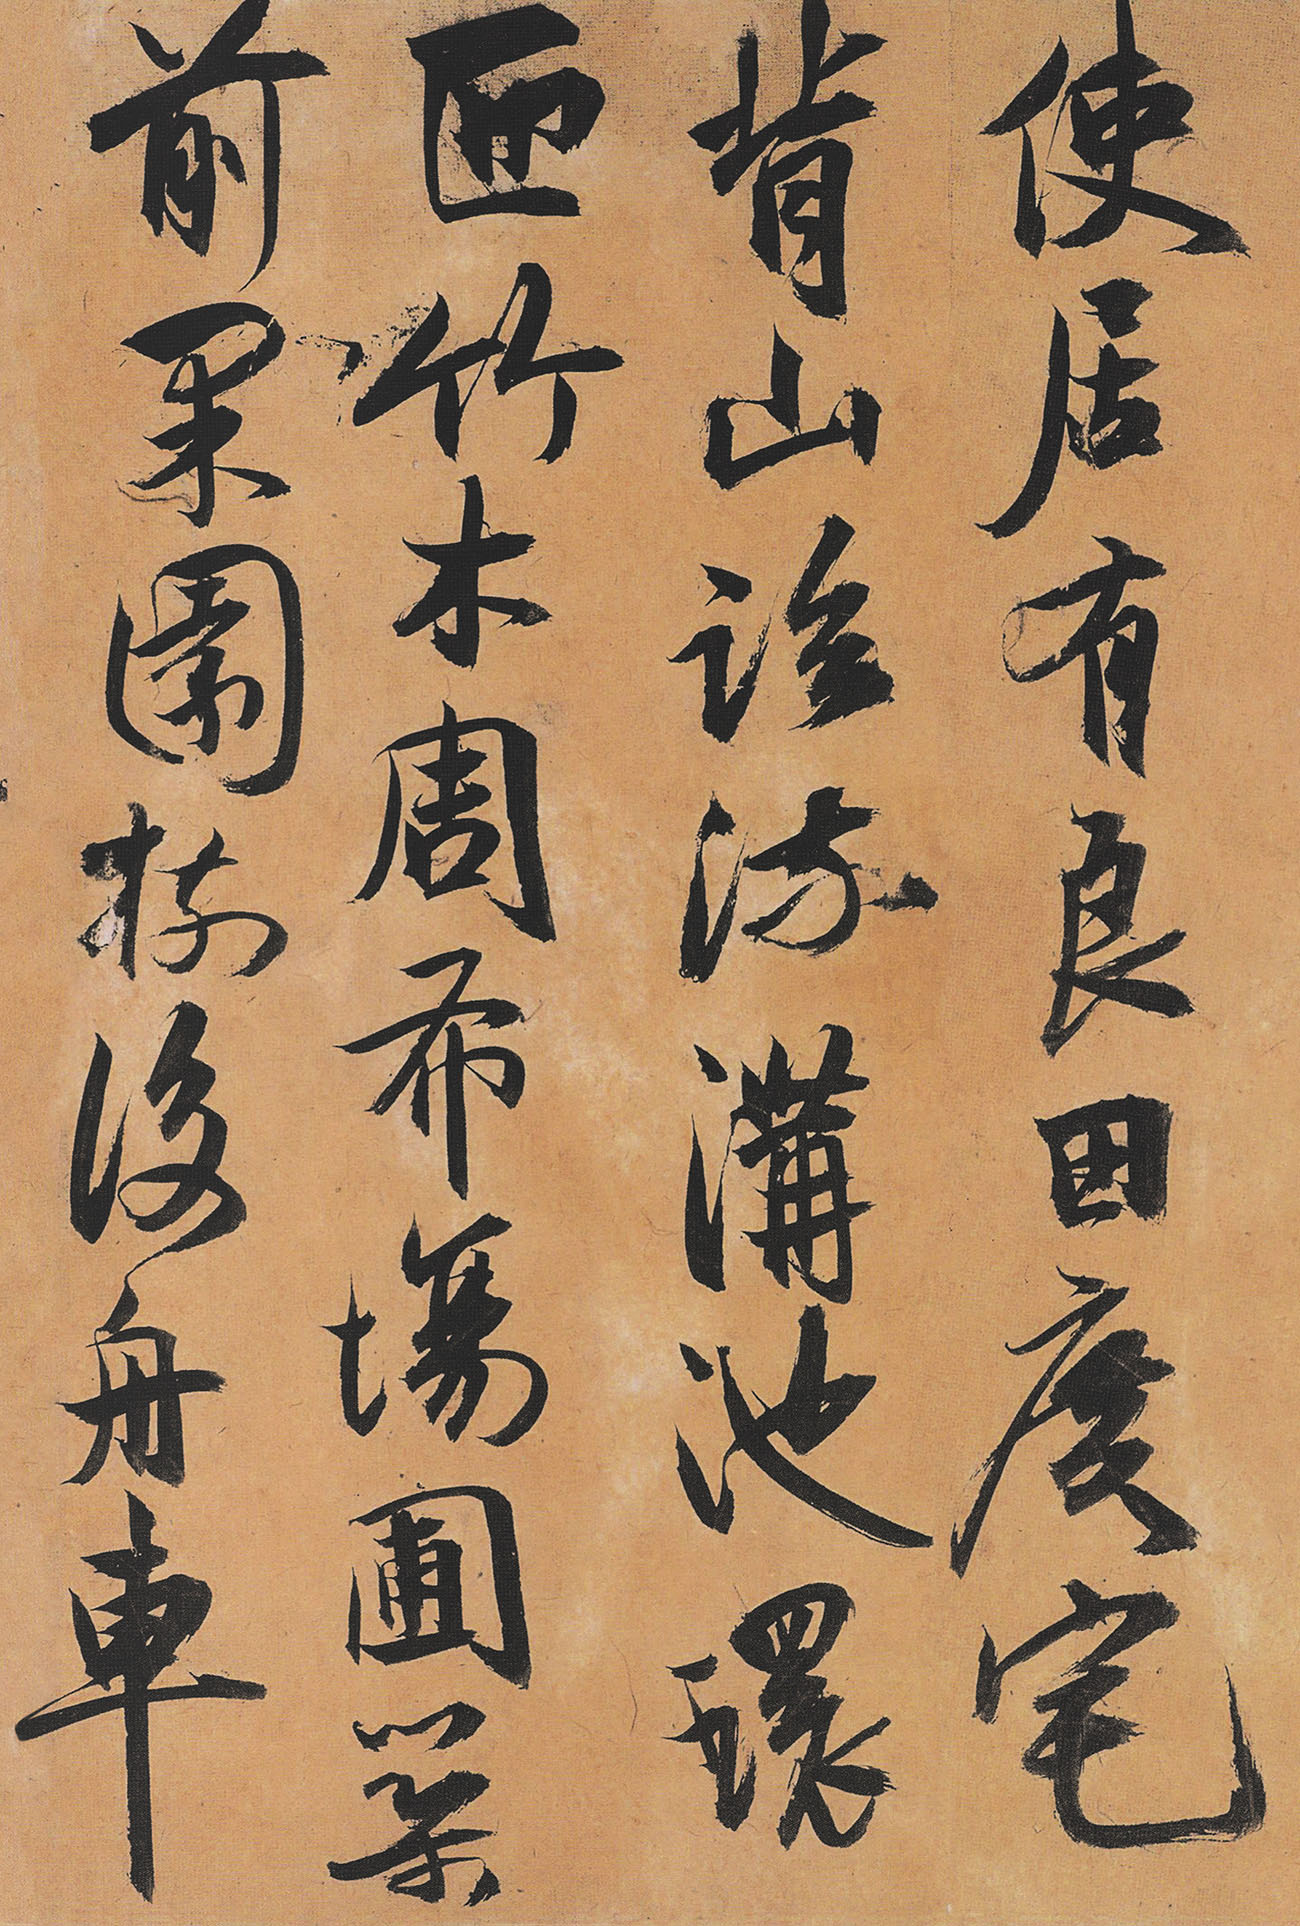 使居有良田廣宅
背山臨流溝池環
匝竹木周布場圃築
前果園樹後舟車